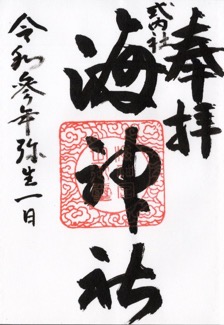 奉拝
式内社
海神社
令和参年弥生一日